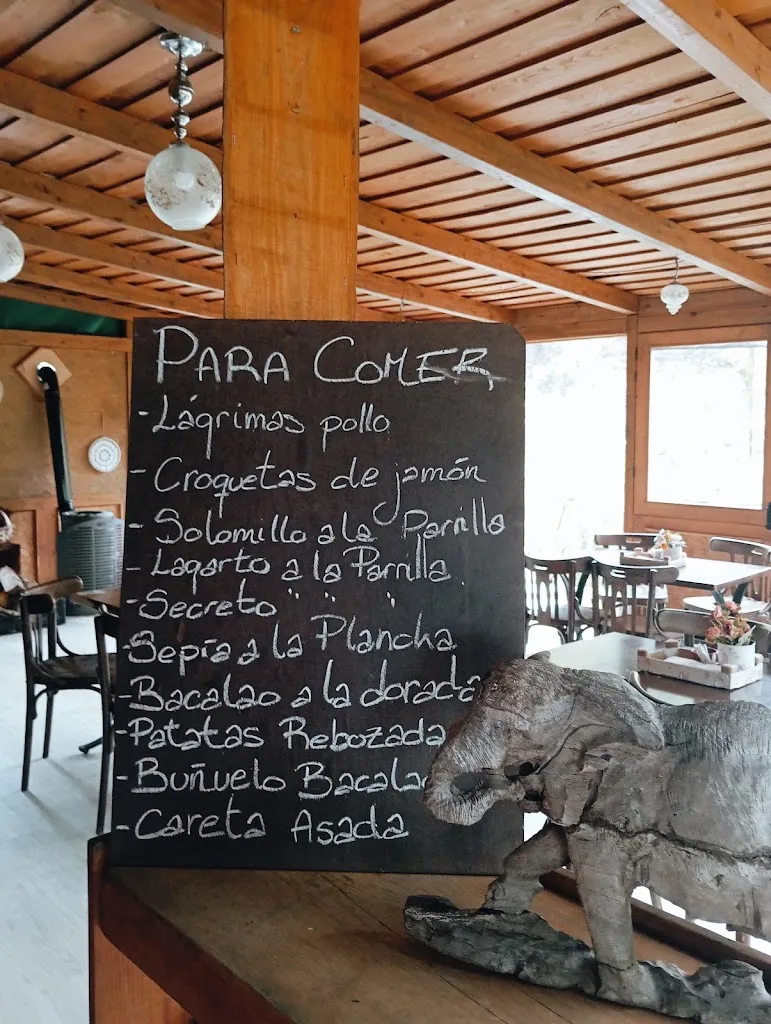 PARA COMER
- Lágrimas pollo
- Croquetas de jamón
- Solomillo a la Parrilla
- Lagarto a la Parrilla
- Secreto " " "
- Sepia a la Plancha
- Bacalao a la dorada
- Patatas Rebozada
- Buñuelo Bacalao
- Careta Asada